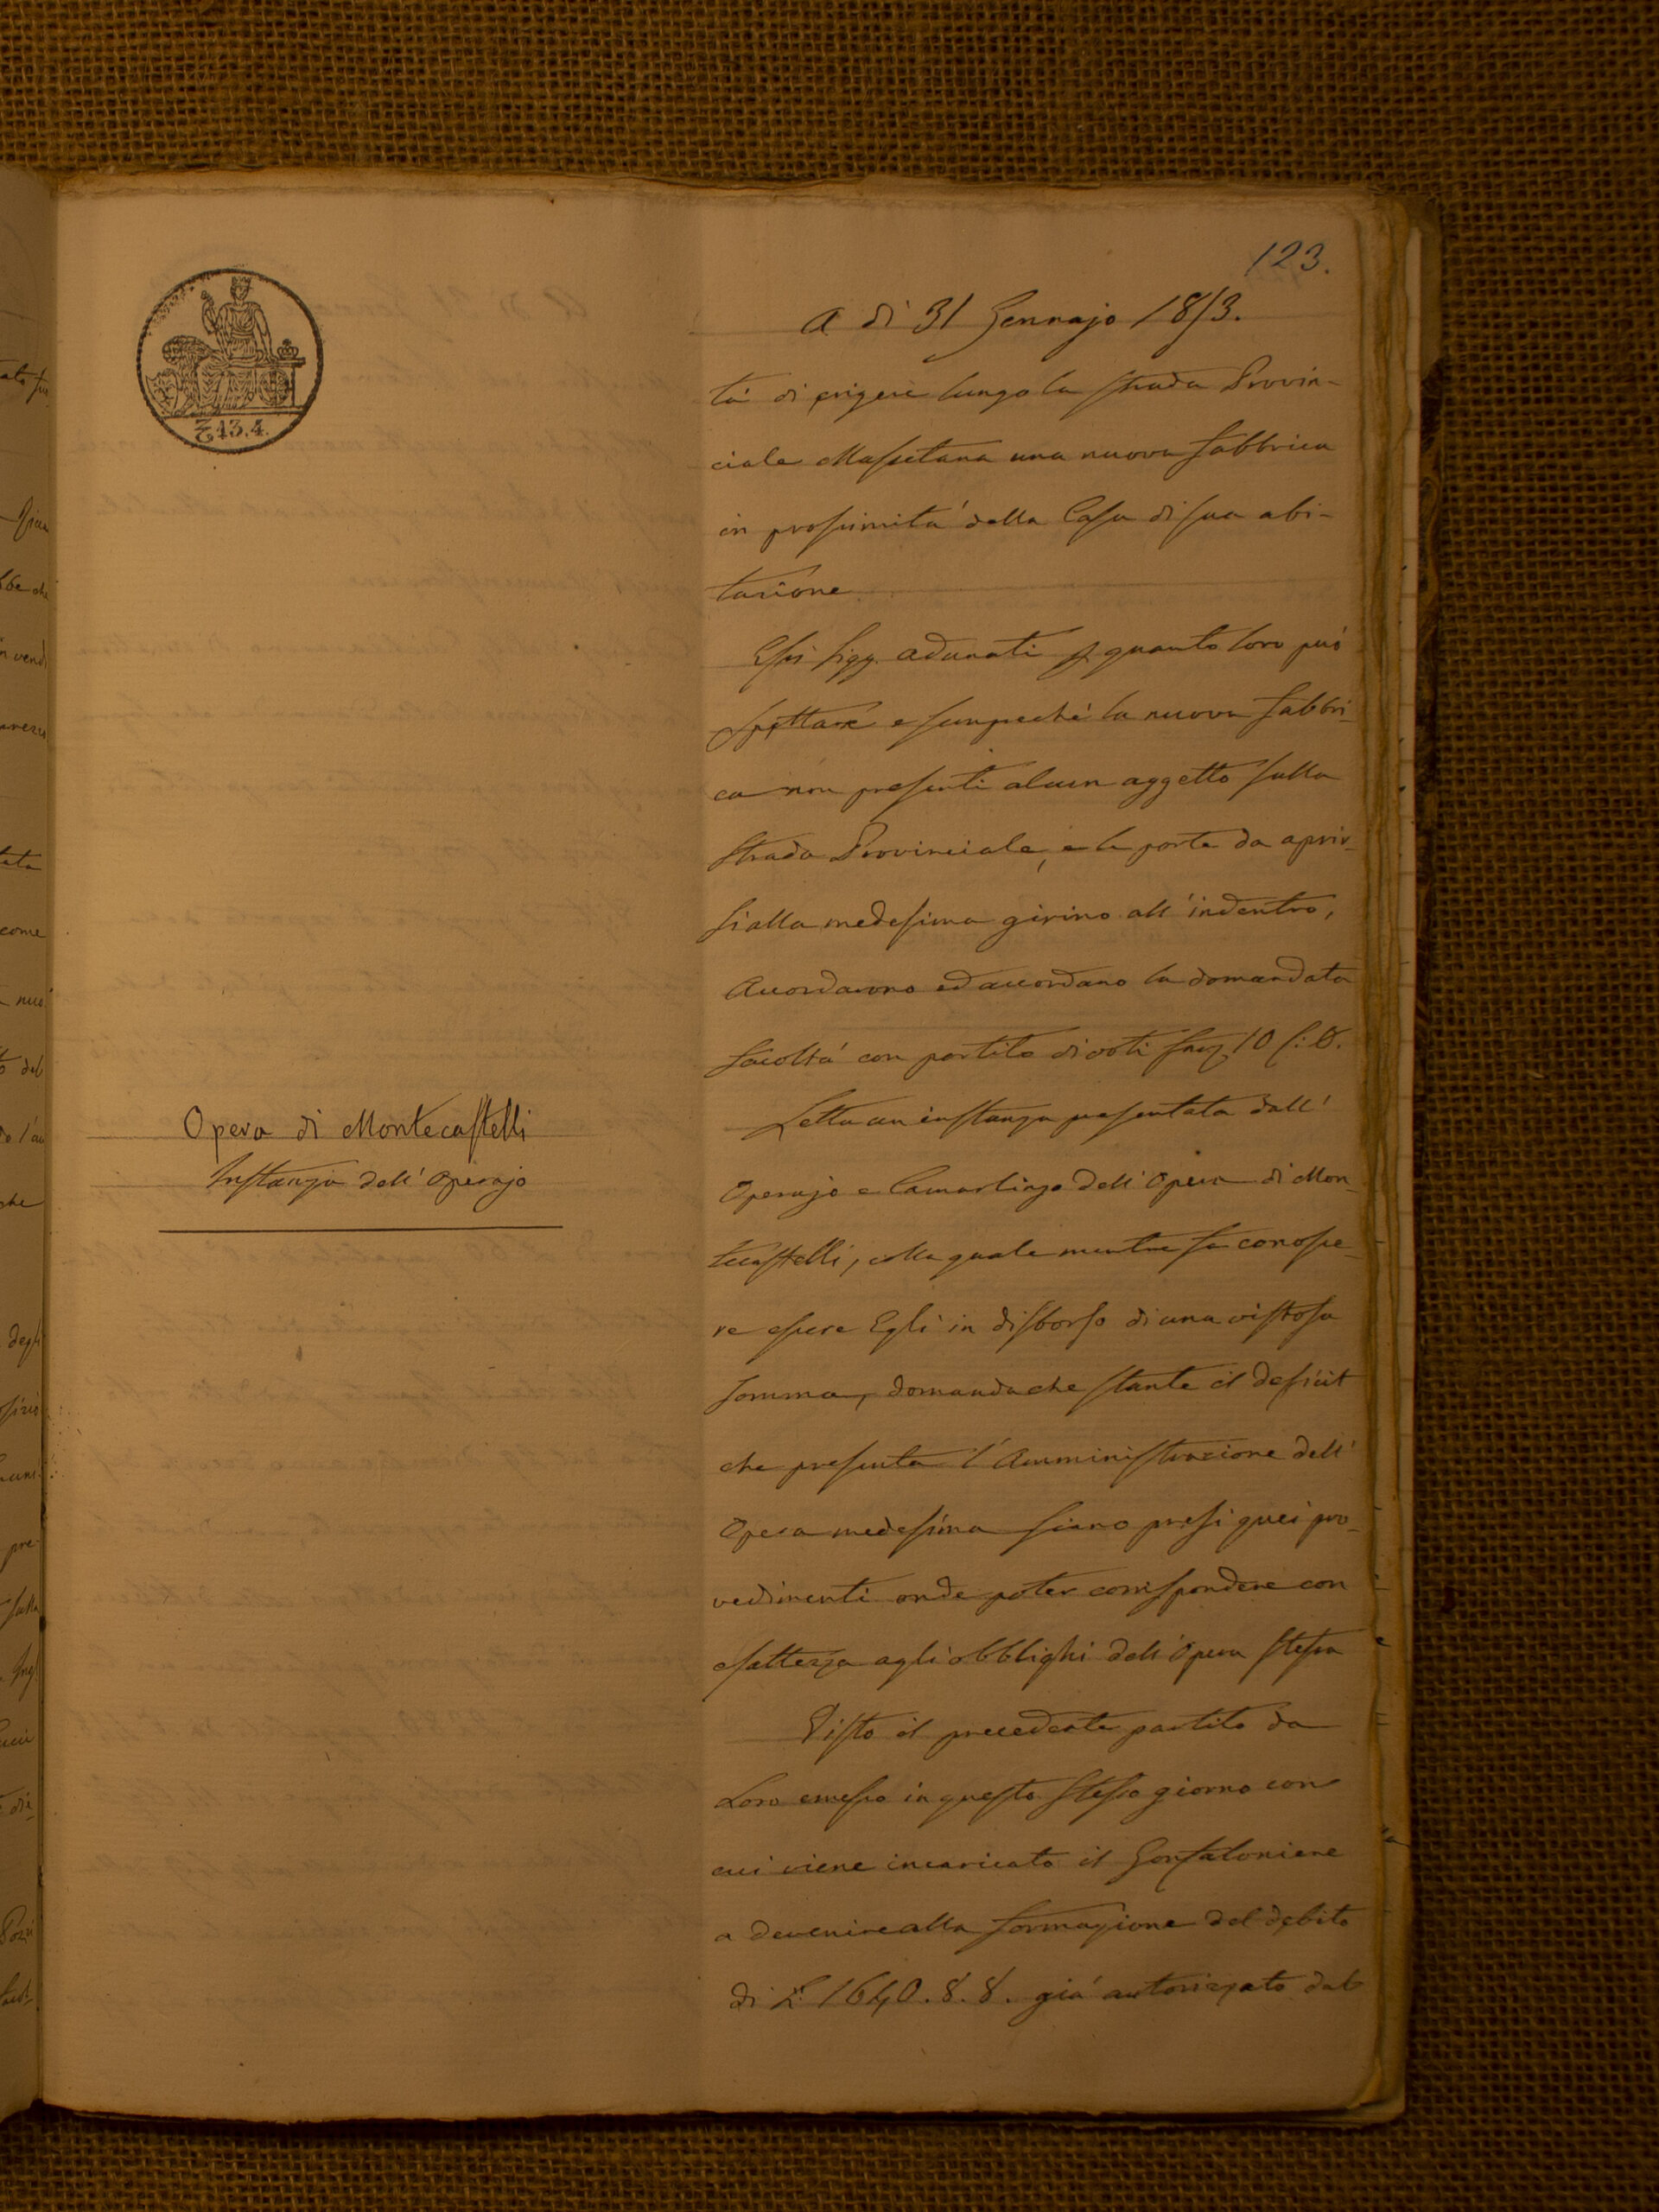 123.
A dì 31 Gennajo 1853.
tà di erigere lungo la strada Provin-
ciale Massetana una nuova fabbrica
in prossimità della Casa di sua abi-
tazione
Essi Sigg. adunati p quanto loro può
spettare e sempreché la nuova fabbri-
ca non presenti alcun aggetto sulla
strada Provinciale, e le porte da aprir-
si alla medesima girino all'indentro,
Accordarono ed accordano la domandata
facoltà con partito di voti fav. 10 c: 0.
Letta un'instanza presentata dall'
Operajo e Camarlingo dell'Opera di Mon-
tecastelli, colla quale mentre fa conosce-
re essere Egli in disborso di una vistosa
somma, domanda che stante il deficit
che presenta l'Amministrazione dell'
Opera medesima siano presi quei pro-
vedimenti onde poter corrispondere con
esattezza agli obblighi dell'Opera stessa
Visto il precedente partito da
Loro emesso in questo stesso giorno con
cui viene incaricato il Gonfaloniere
a devenire alla formazione del debito
di £ 1640.8.8. già autorizzato dal
Opera di Montecastelli
Instanza dell'Operajo
13.4.